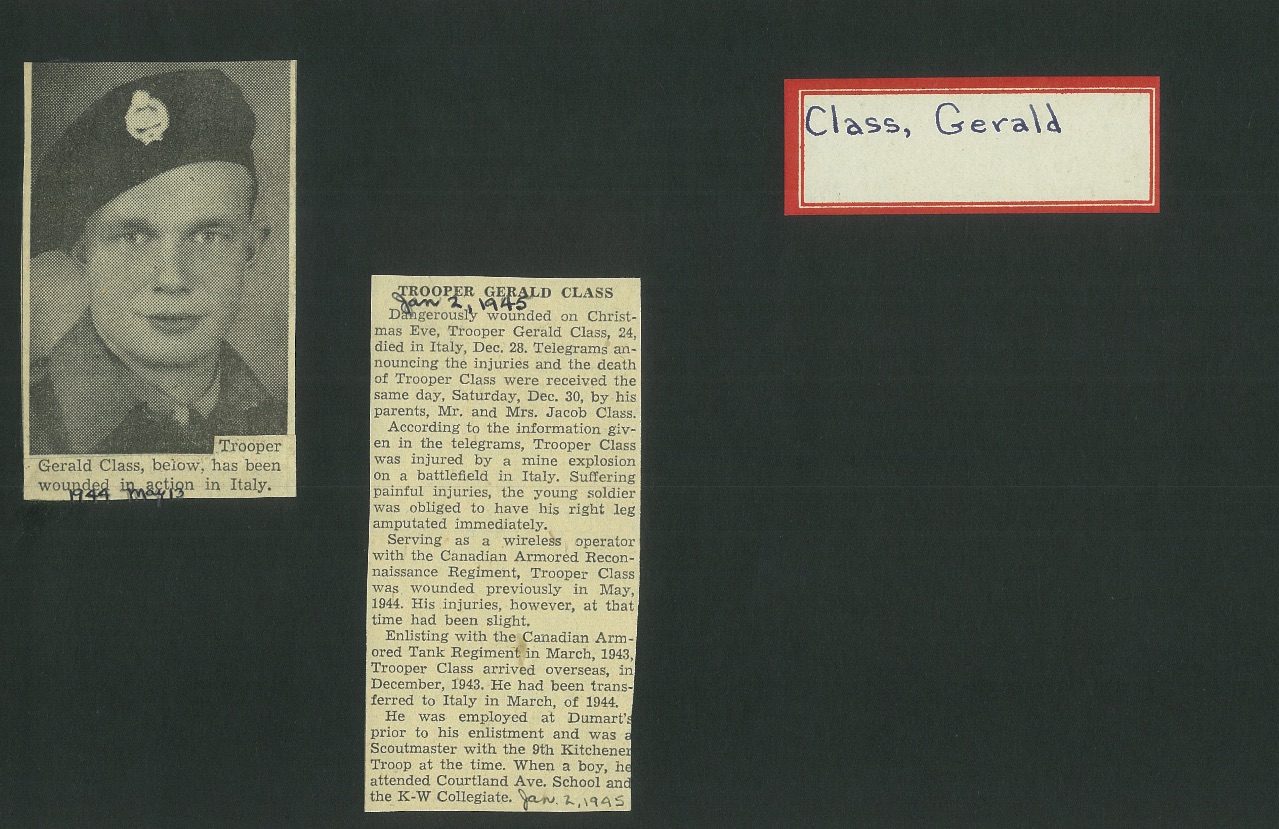 Class, Gerald
Trooper
Gerald Class, below, has been
wounded in action in Italy.
1944 May 13
TROOPER GERALD CLASS
Jan 2, 1945
Dangerously wounded on Christ-
mas Eve, Trooper Gerald Class, 24,
died in Italy, Dec. 28. Telegrams an-
nouncing the injuries and the death
of Trooper Class were received the
same day, Saturday, Dec. 30, by his
parents, Mr. and Mrs. Jacob Class.
According to the information giv-
en in the telegrams, Trooper Class
was injured by a mine explosion
on a battlefield in Italy. Suffering
painful injuries, the young soldier
was obliged to have his right leg
amputated immediately.
Serving as a wireless operator
with the Canadian Armored Recon-
naissance Regiment, Trooper Class
was wounded previously in May,
1944. His injuries, however, at that
time had been slight.
Enlisting with the Canadian Arm-
ored Tank Regiment in March, 1943,
Trooper Class arrived overseas, in
December, 1943. He had been trans-
ferred to Italy in March, of 1944.
He was employed at Dumart's
prior to his enlistment and was a
Scoutmaster with the 9th Kitchener
Troop at the time. When a boy, he
attended Courtland Ave. School and
the K-W Collegiate. Jan. 2, 1945